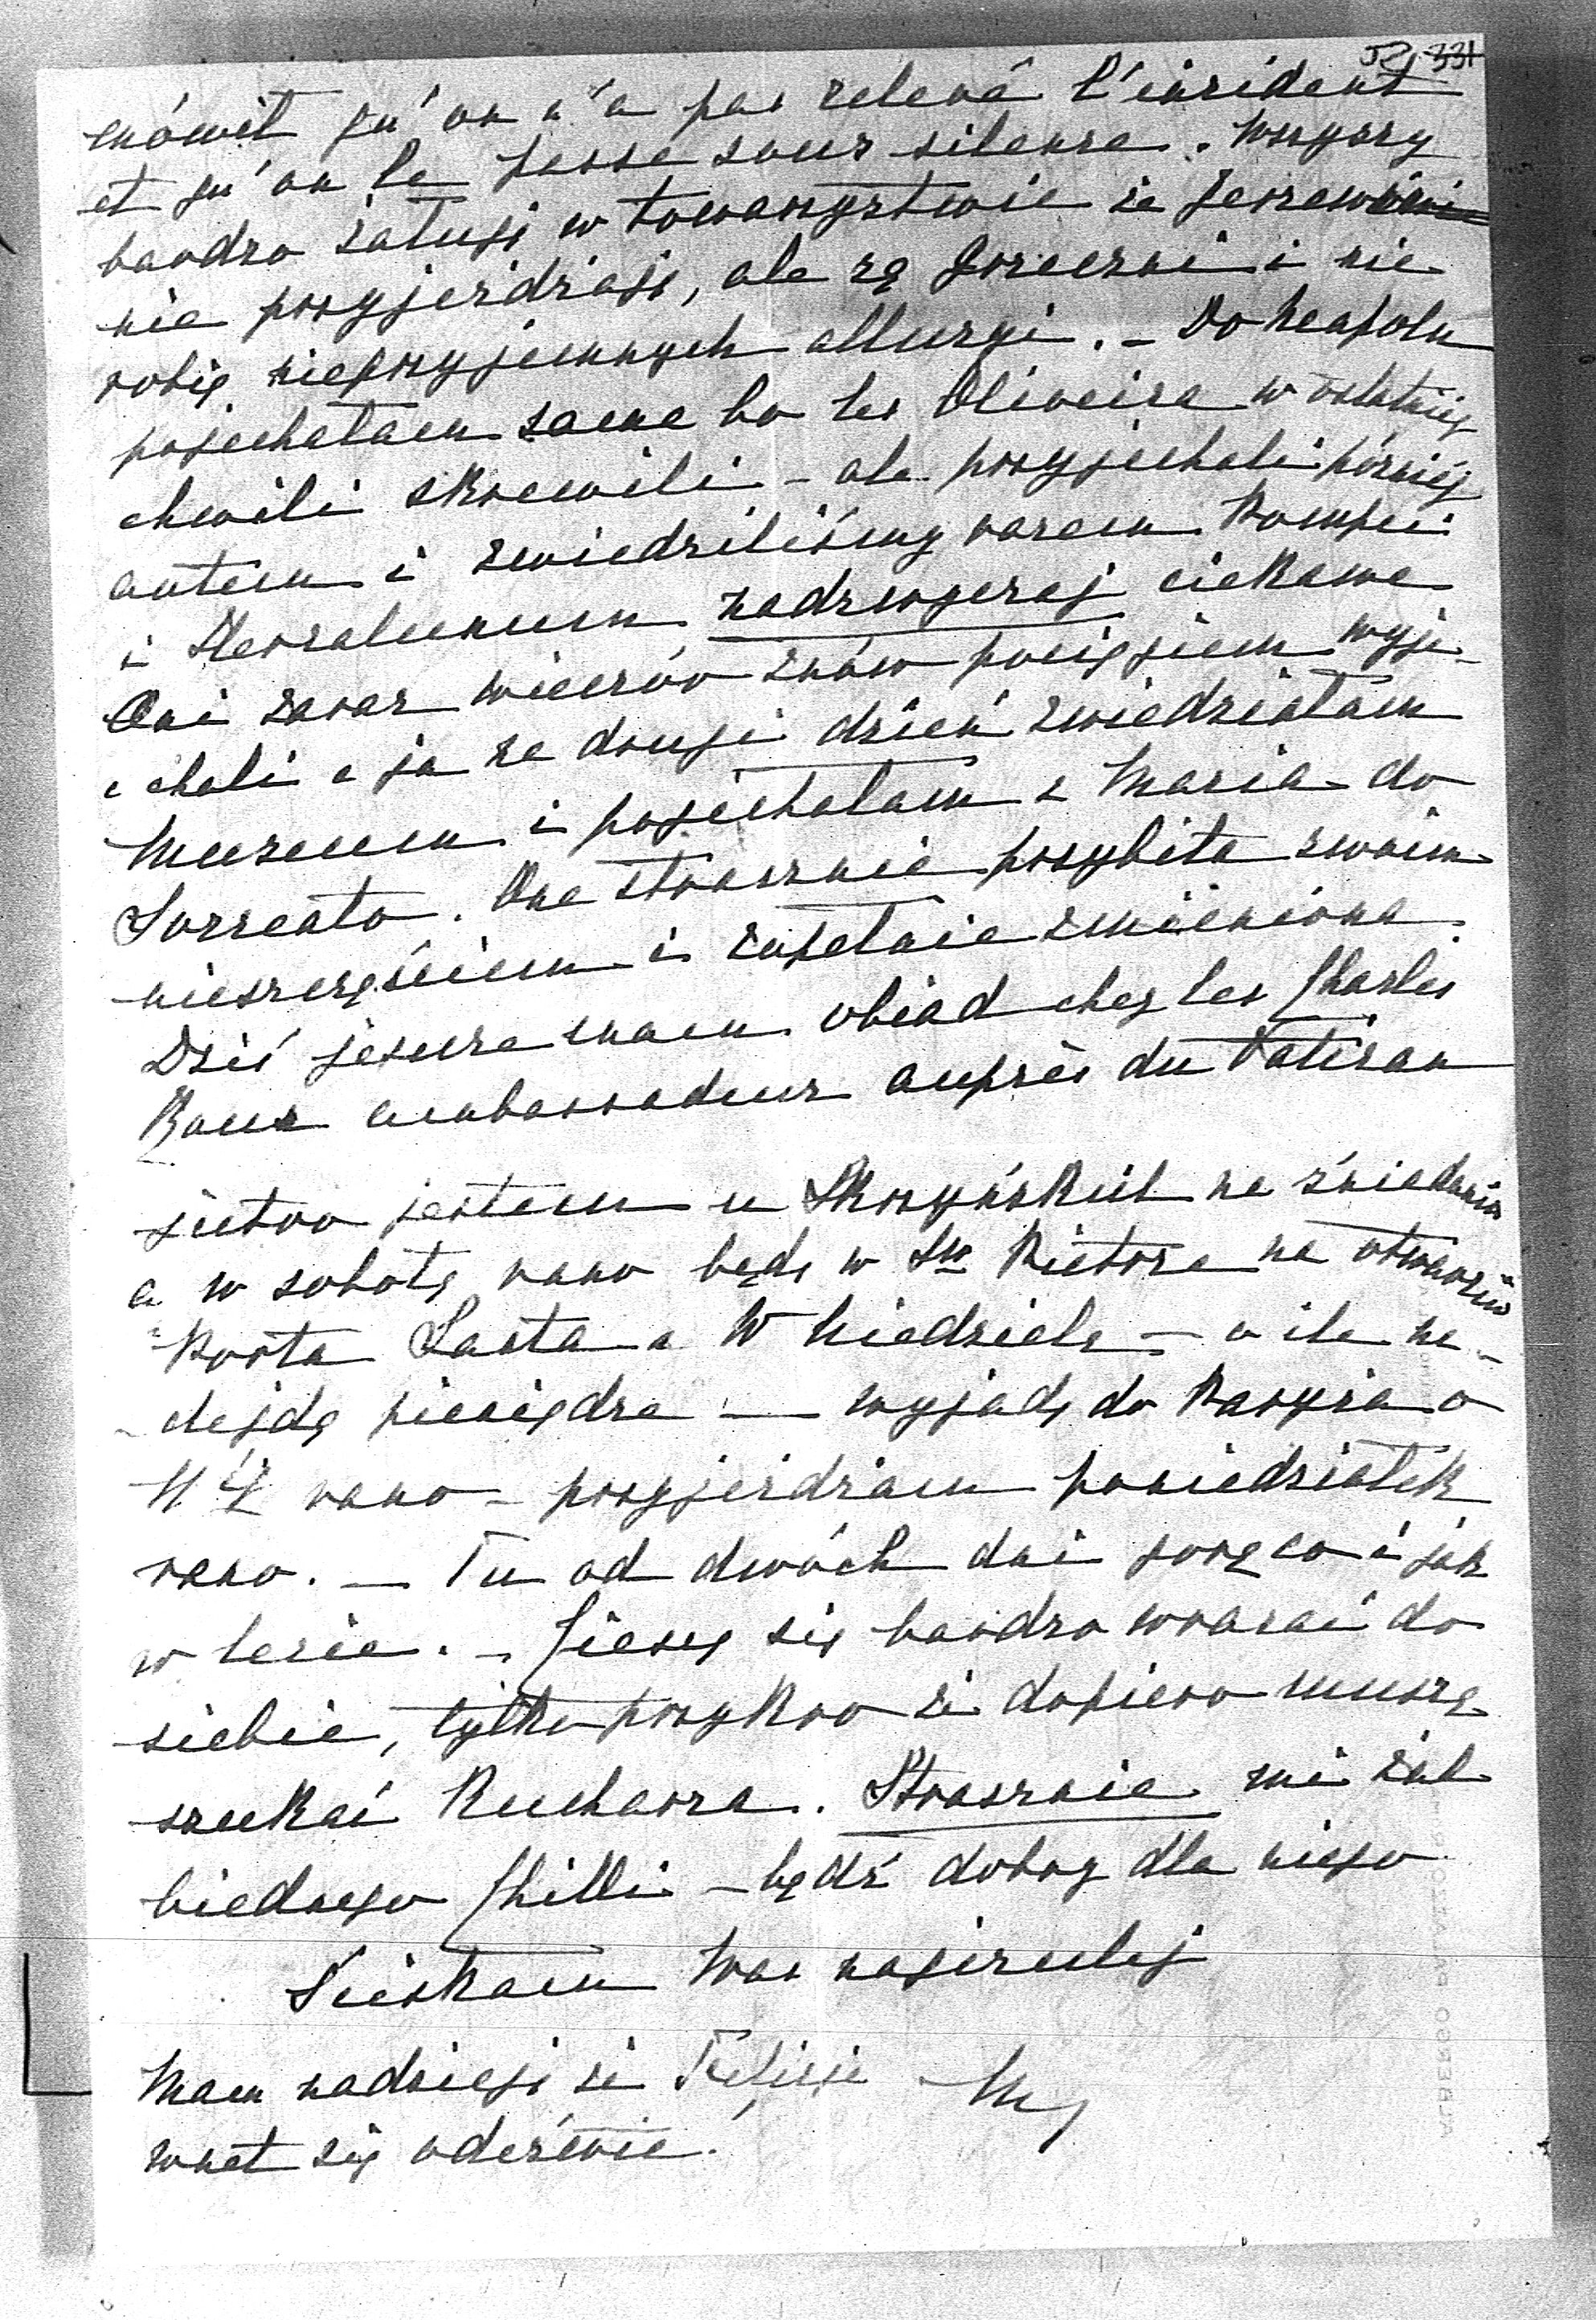 52 331
mówił qu'on n'a pas relevé l'incident
et qu'on le passe sous silence. Wszyscy
bardzo żałują w towarzystwie że
nie przyjeżdżają, ale są grzeczni i nie
robią nieprzyjemnych alluzyi. – Do Neapolu
pojechałam sama bo les Oliveira w ostatniej
chwili skrewili – ale przyjechali później
autem i zwiedziliśmy razem Pompei
i Herculanum nadzwyczaj ciekawe
Oni zaraz wieczór znów pociągiem wyje-
chali a ja na drugi dzień zwiedziałam
Muzeum i pojechałam z Maria do
Sorrento. Ona strasznie przybita swoim
nieszczęściem i zupełnie zmieniona.
Dziś jeszcze mam obiad chez les Charles
Roux ambassadeur auprès du Vatican
jutro jestem u Skrzyńskich na śniadaniu
a w sobotę rano będę w Sw Pietrze na otwarciu
Porta Santa a W Niedziele – o ile na-
dejdą pieniądze — wyjadę do Paryża o
11 ½ rano – przyjeżdżam poniedziałek
rano. — Tu od dwóch dni gorąco i jak
w lecie. – Cieszę się bardzo wracać do
siebie, tylko przykro że dopiero muszę
szukać Kucharza. Strasznie mi żal
biednego Chilli – bądź dobry dla niego
Ściskam Was najczulej
Mam nadzieję że Felicje My
wnet się odezwie.
ALBERGO